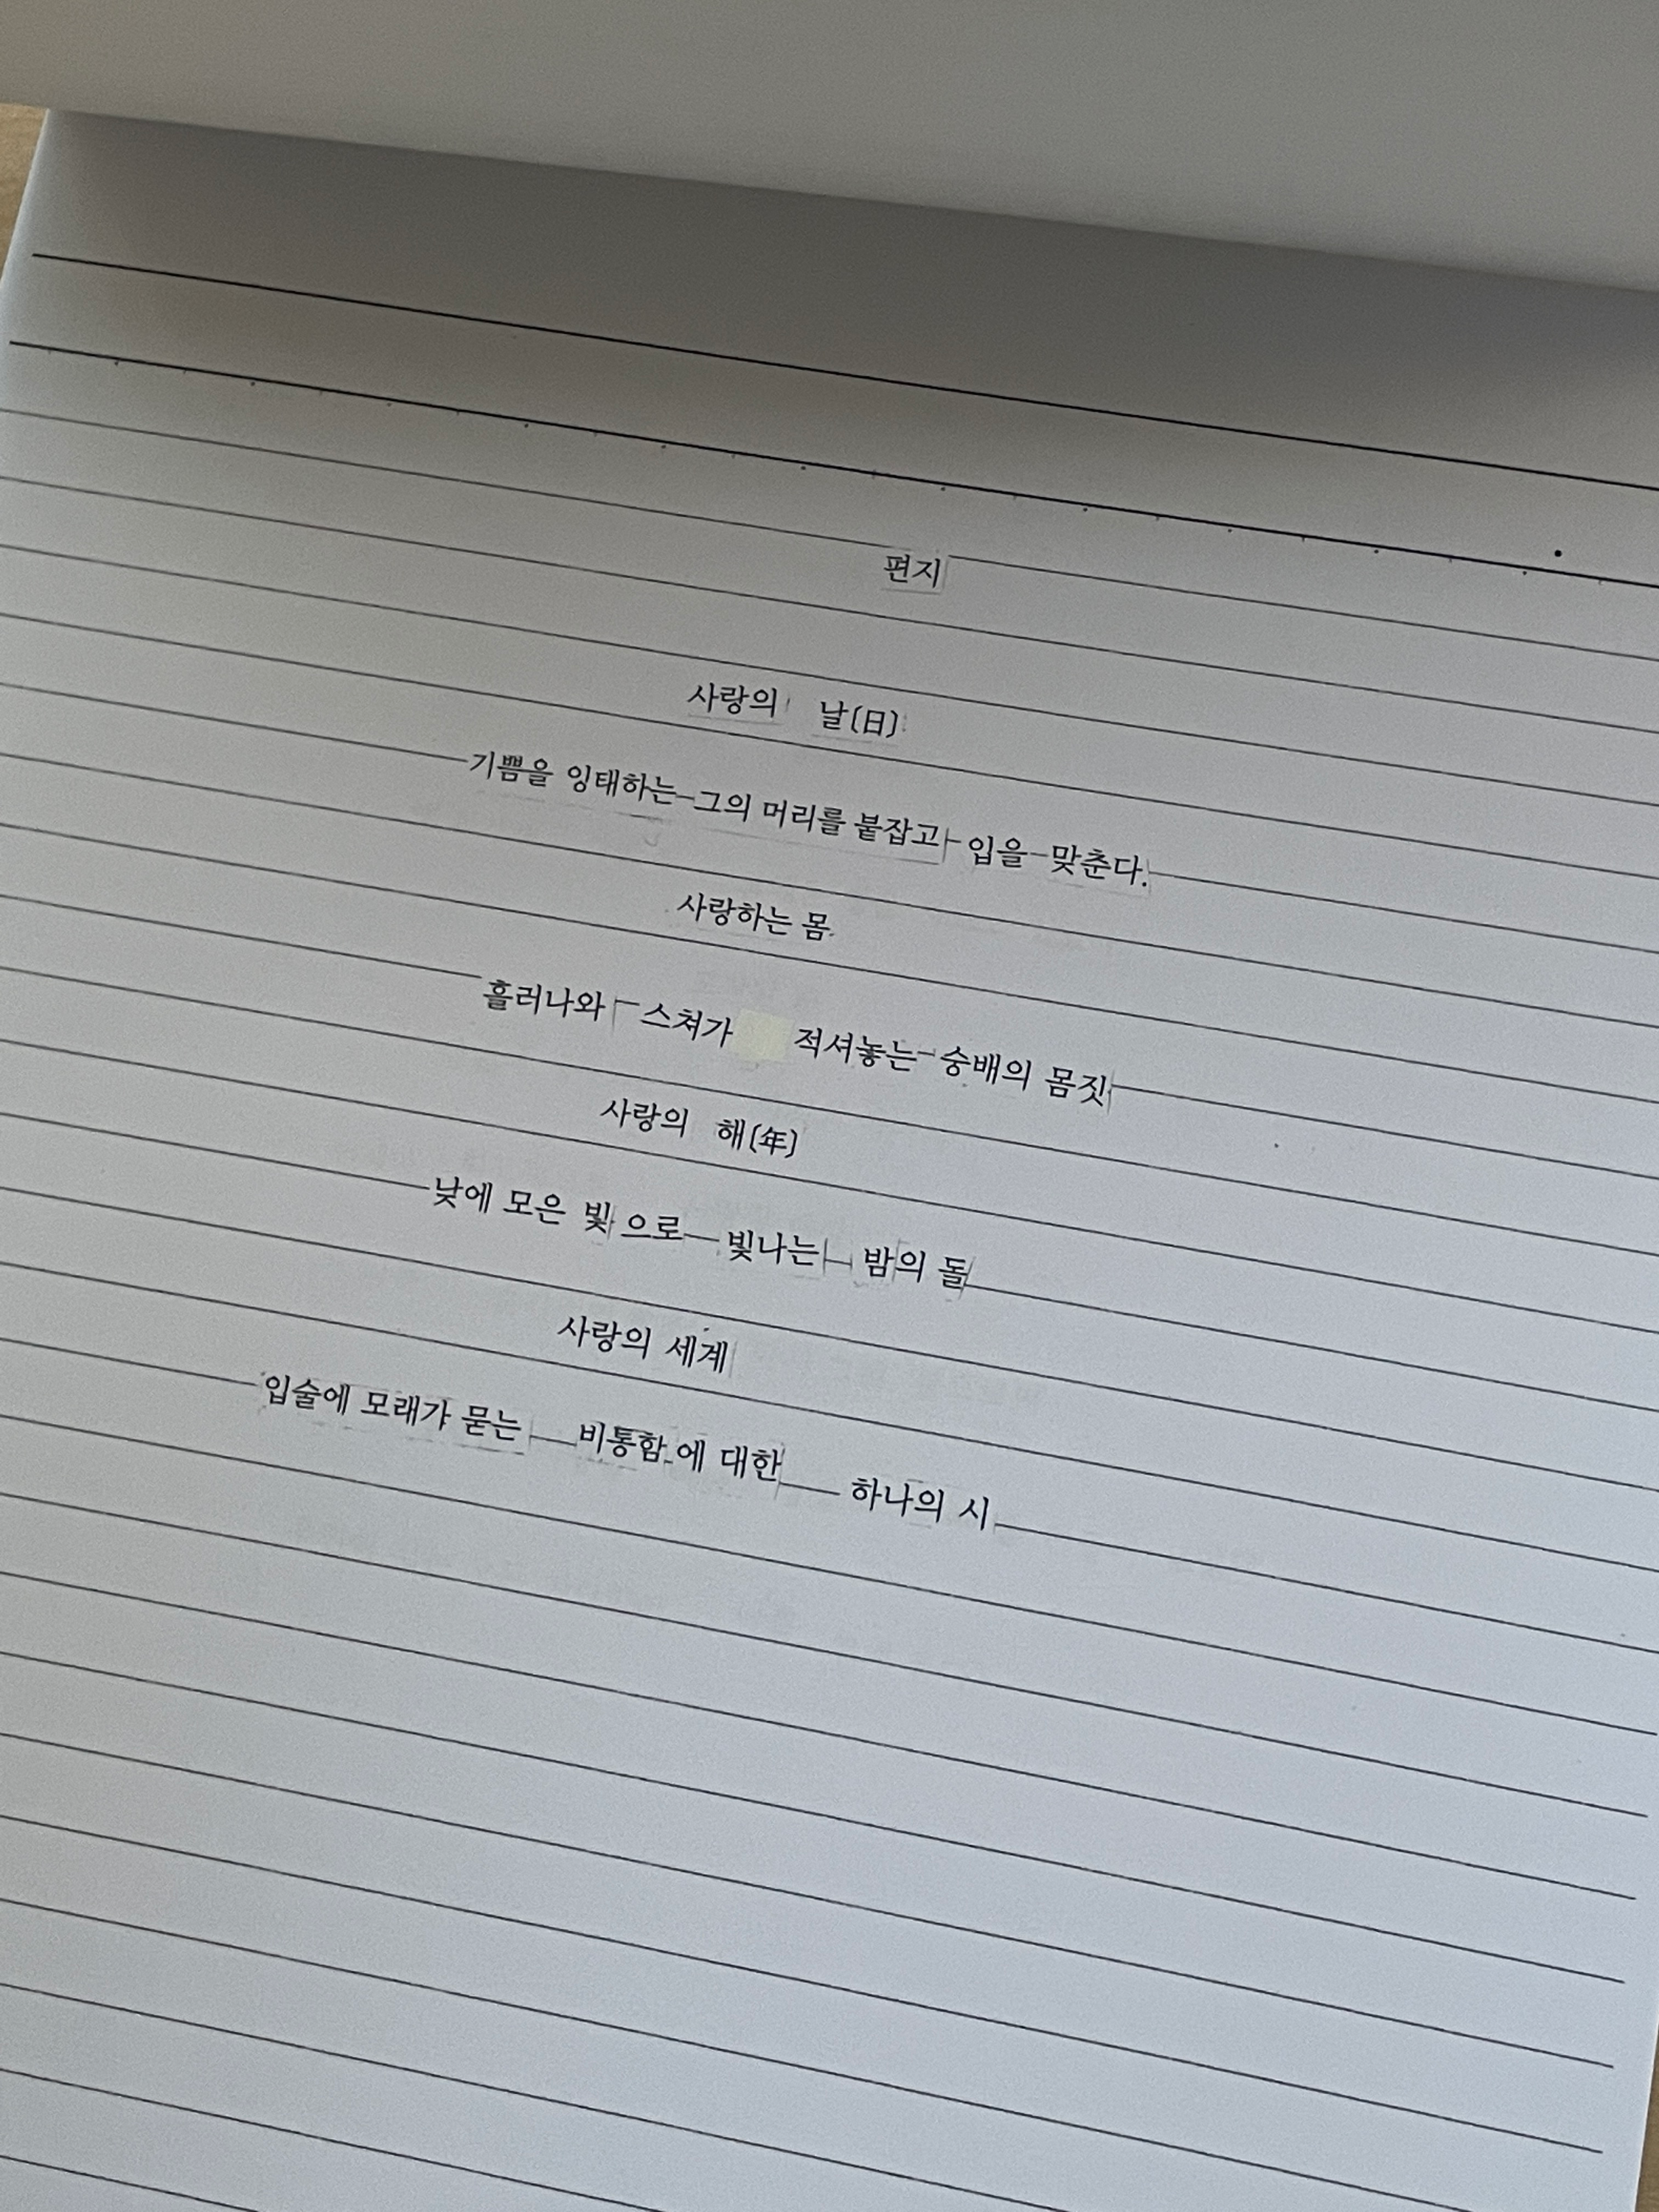 편지
사랑의 날(日)
기쁨을 잉태하는 그의 머리를 붙잡고 입을 맞춘다.
사랑하는 몸
흘러나와 스쳐가 적셔놓는 숭배의 몸짓
사랑의 해(年)
낮에 모은 빛으로 빛나는 밤의 돌
사랑의 세계
입술에 모래가 묻는 비통함에 대한 하나의 시